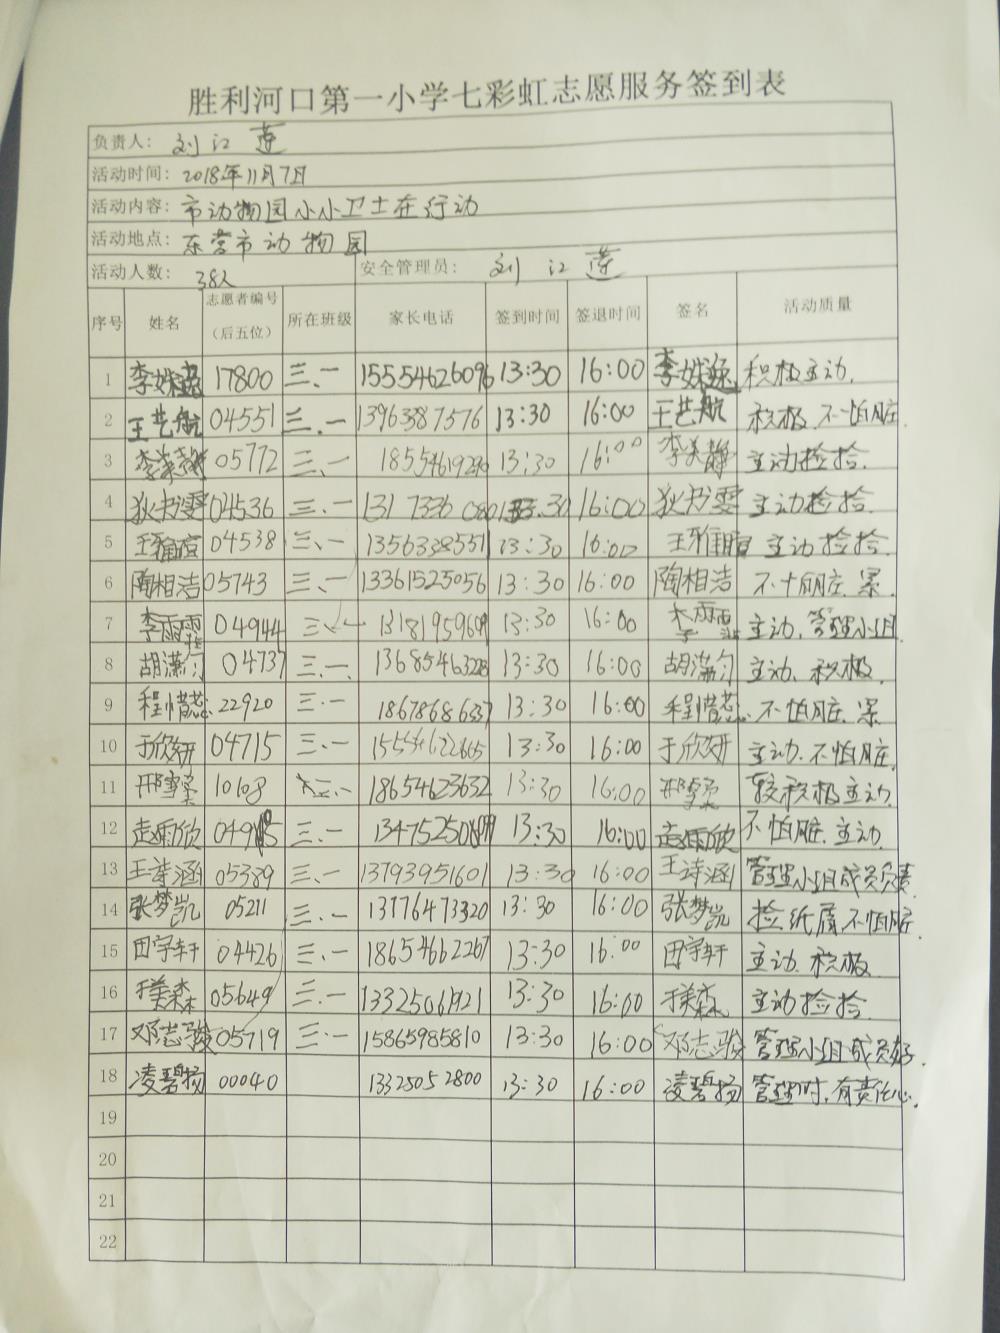 胜利河口第一小学七彩虹志愿服务签到表
负责人: 刘江莲
活动时间: 2018年11月7日
活动内容: 市动物园小小卫士在行动
活动地点: 东营市动物园
活动人数: 38人 安全管理员: 刘江莲
序号 姓名 志愿者编号(后五位) 所在班级 家长电话 签到时间 签退时间 签名 活动质量
1 17800 三、一 15554626096 13:30 16:00 积极主动.
2 王艺航 04551 三、一 13963387576 13:30 16:00 王艺航 积极、不怕脏.
3 李美静 05772 三、一 13:30 16:00 李美静 主动捡拾.
4 狄书雯 04536 三、一 13:30 16:00 狄书雯 主动捡拾.
5 04538 三、一 1356338551 13:30 16:00 主动捡拾.
6 陶相洁 05743 三、一 13361525056 13:30 16:00 陶相洁 不怕脏、累.
7 04944 13:30 16:00 主动、管理小组.
8 胡潇匀 04737 三、一 13:30 16:00 胡潇匀 主动、积极.
9 22920 三、一 13:30 16:00 不怕脏、累.
10 于欣妍 04715 三、一 13:30 16:00 于欣妍 主动、不怕脏.
11 10108 18654623632 13:30 16:00 较积极主动.
12 赵雨欣 三、一 13:30 16:00 赵雨欣 不怕脏、主动.
13 王诗涵 05389 三、一 13793951601 13:30 16:00 王诗涵 管理小组成员负责.
14 张梦凯 05211 三、一 13176473320 13:30 16:00 张梦凯 捡纸屑不怕脏.
15 田宇轩 04426 三、一 18654662267 13:30 16:00 田宇轩 主动、积极.
16 05649 三、一 13325061921 13:30 16:00 主动捡拾.
17 邓志骏 05719 三、一 15865985810 13:30 16:00 邓志骏 管理小组成员好.
18 凌碧扬 00040 13325052800 13:30 16:00 凌碧扬 管理时,有责任心.
19
20
21
22